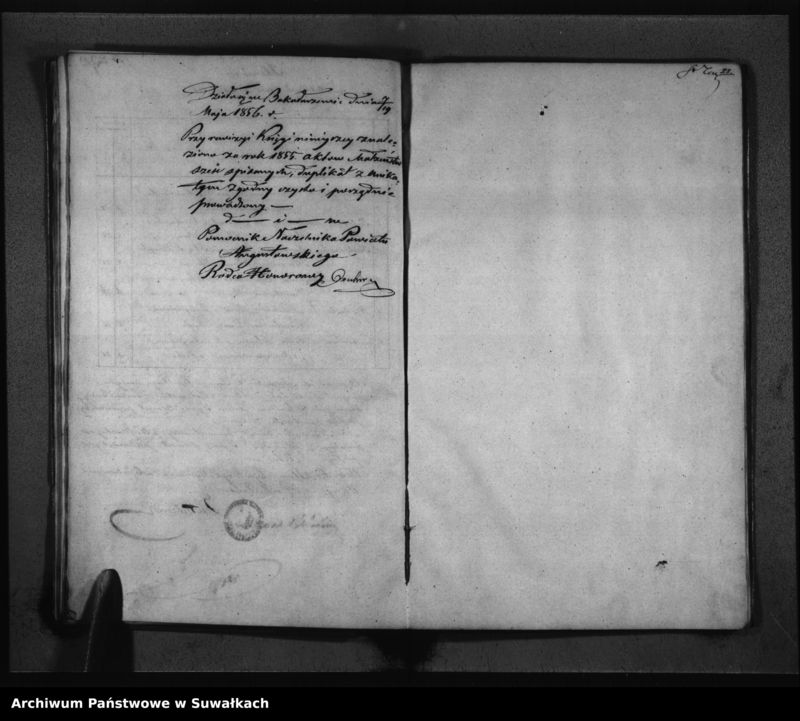 Działo się w Bakałarzewie dnia 7/19
Maja 1856. r.
Przy rewizyi Księgi niniejszey znale-
ziono za rok 1855 aktow Małżeństw
sześć spisanych, duplikat z unika-
tem zgodny czysto i porządnie
prowadzony —
d — i — ne
Pomocnik Naczelnika Powiatu
Augustowskiego
Radca Honorowy
Archiwum Państwowe w Suwałkach